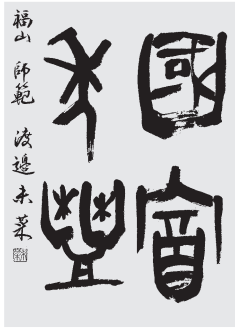 國富
年豐
福山 師範 渡邊未菜